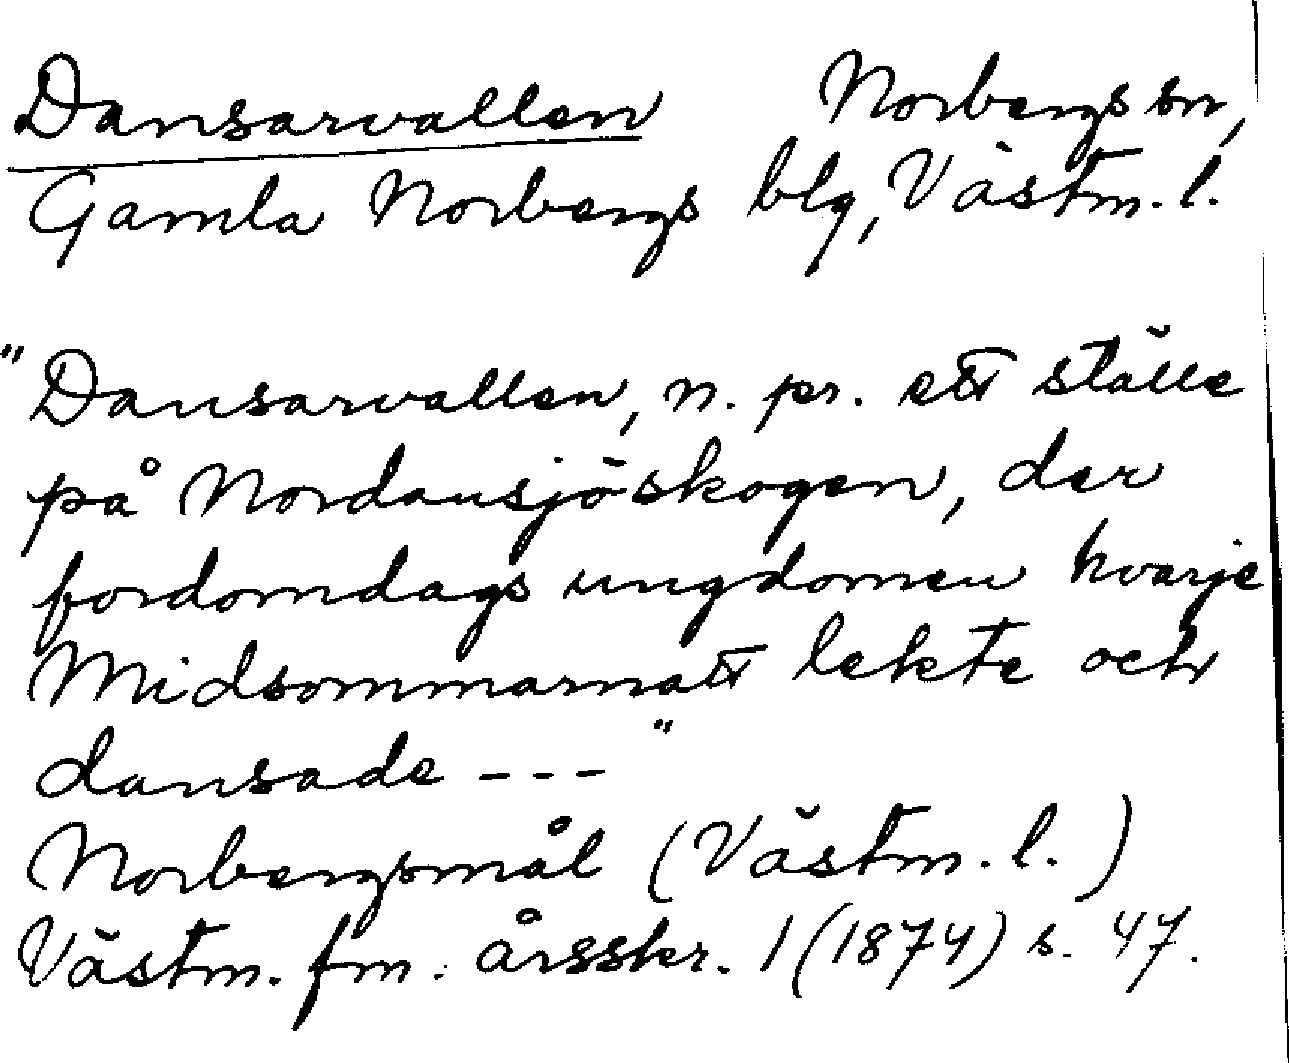 Dansarvallen Norbergs sn,
Gamla Norbergs blg, Västm. l.
"Dansarvallen, n. pr. ett ställe
på Nordansjöskogen, der
fordomdags ungdomen hvarje
Midsommarnatt lekte och
dansade ---"
Norbergsmål (Västm. l.)
Västm. fm: årsskr. 1 (1874) s. 47.